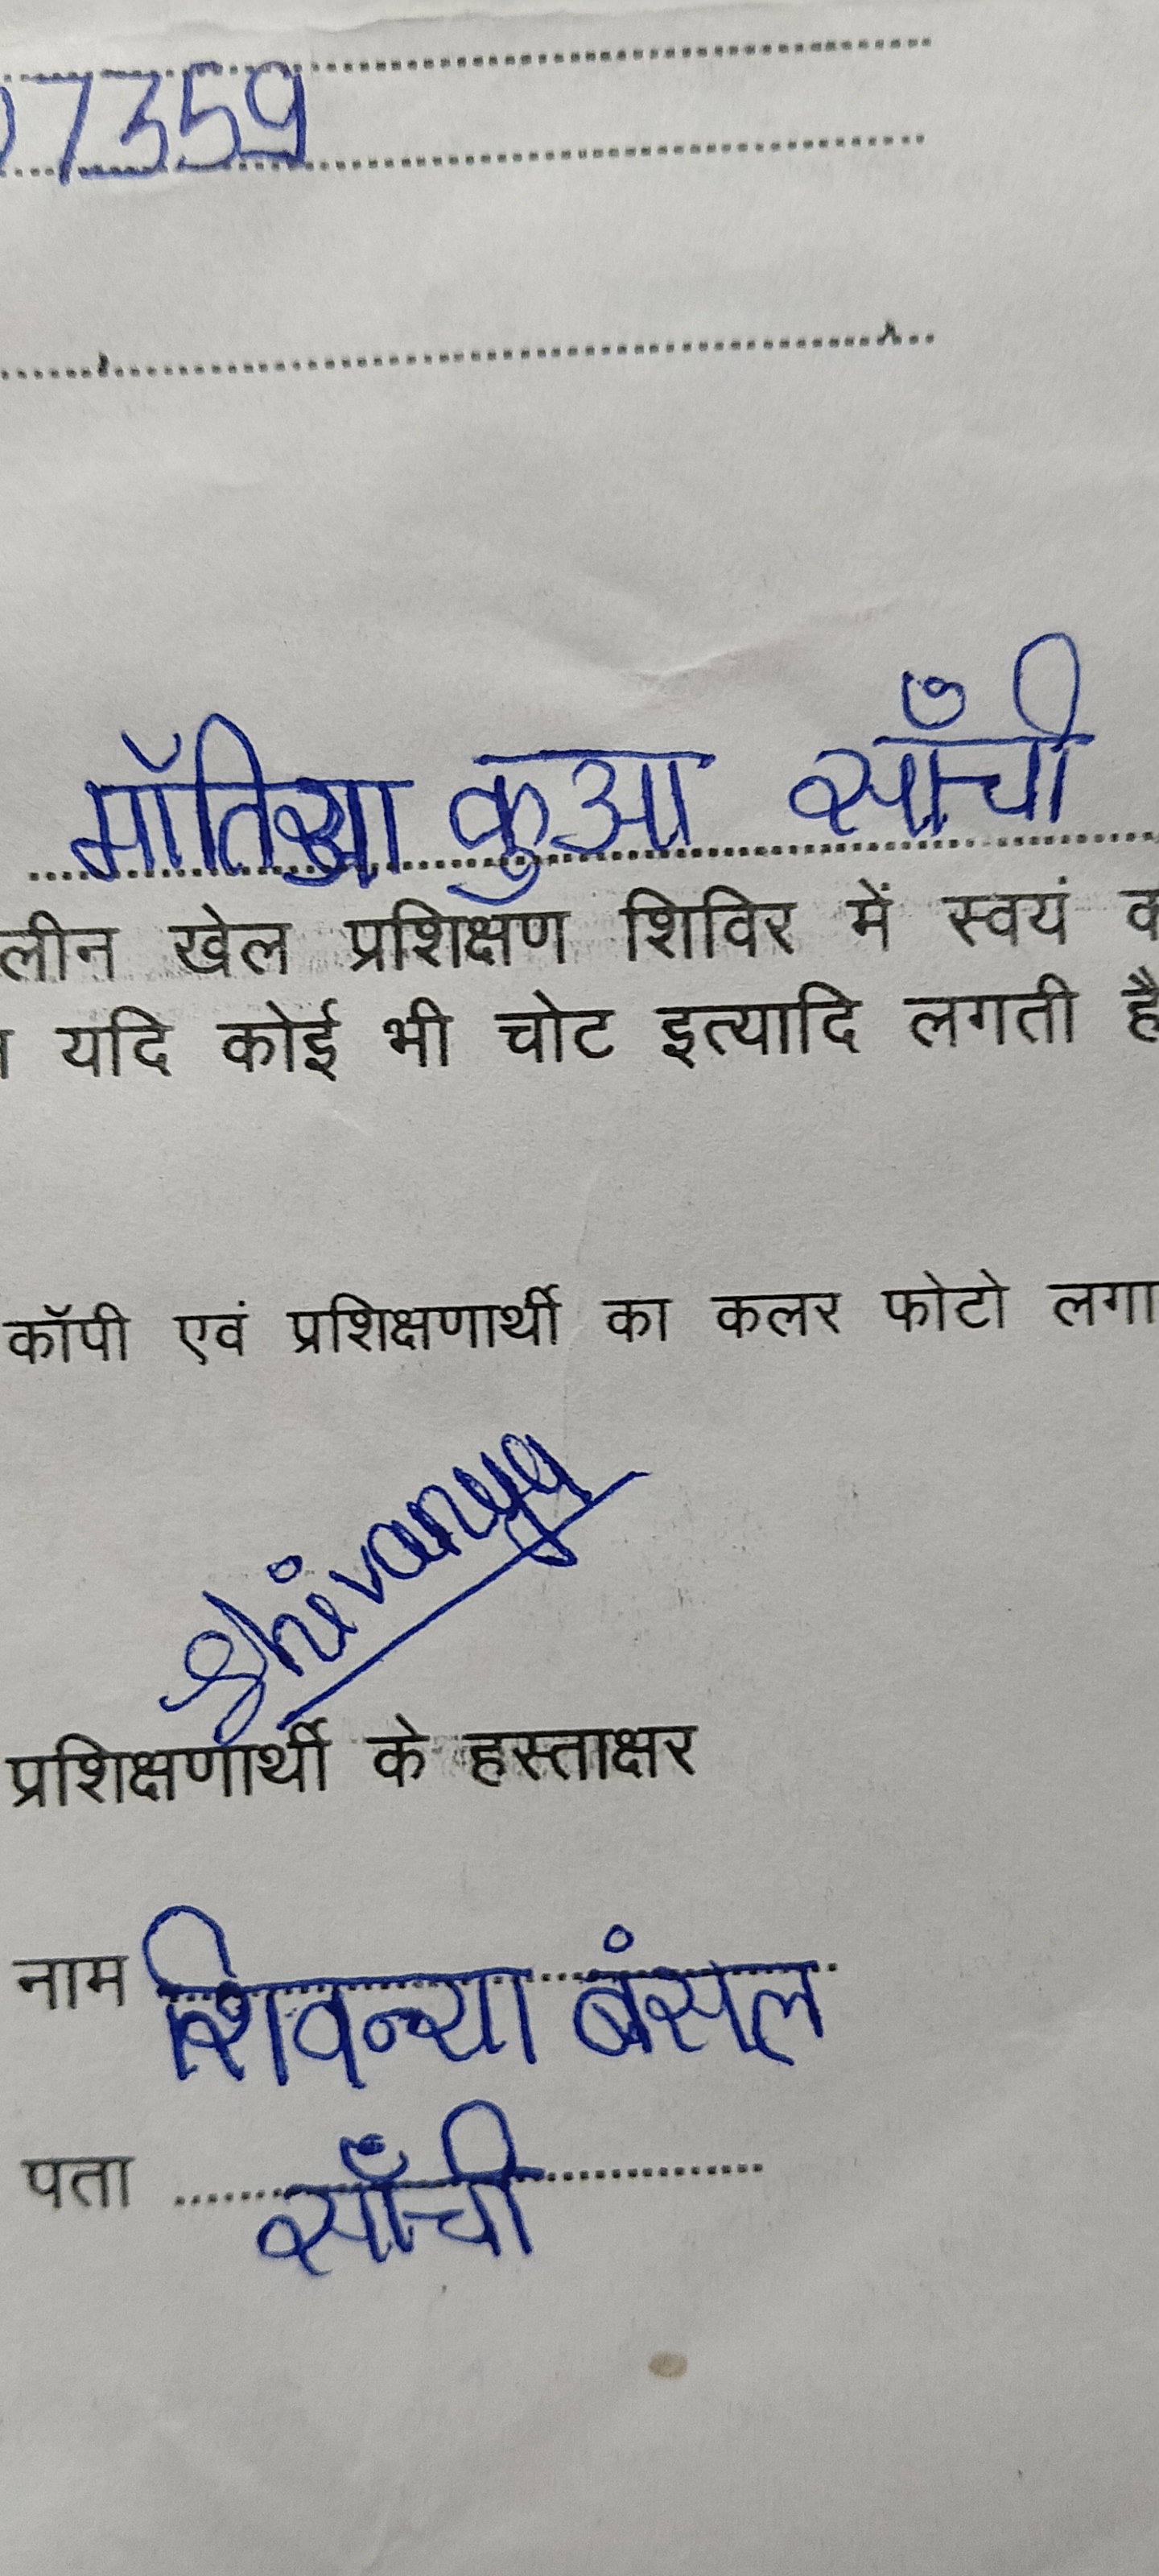 7359
मॉतिया कुआ साँची
लीन खेल प्रशिक्षण शिविर में स्वयं
यदि कोई भी चोट इत्यादि लगती है
कॉपी एवं प्रशिक्षणार्थी का कलर फोटो लगा
Shivanya
प्रशिक्षणार्थी के हस्ताक्षर
नाम शिवन्या बंसल
पता साँची